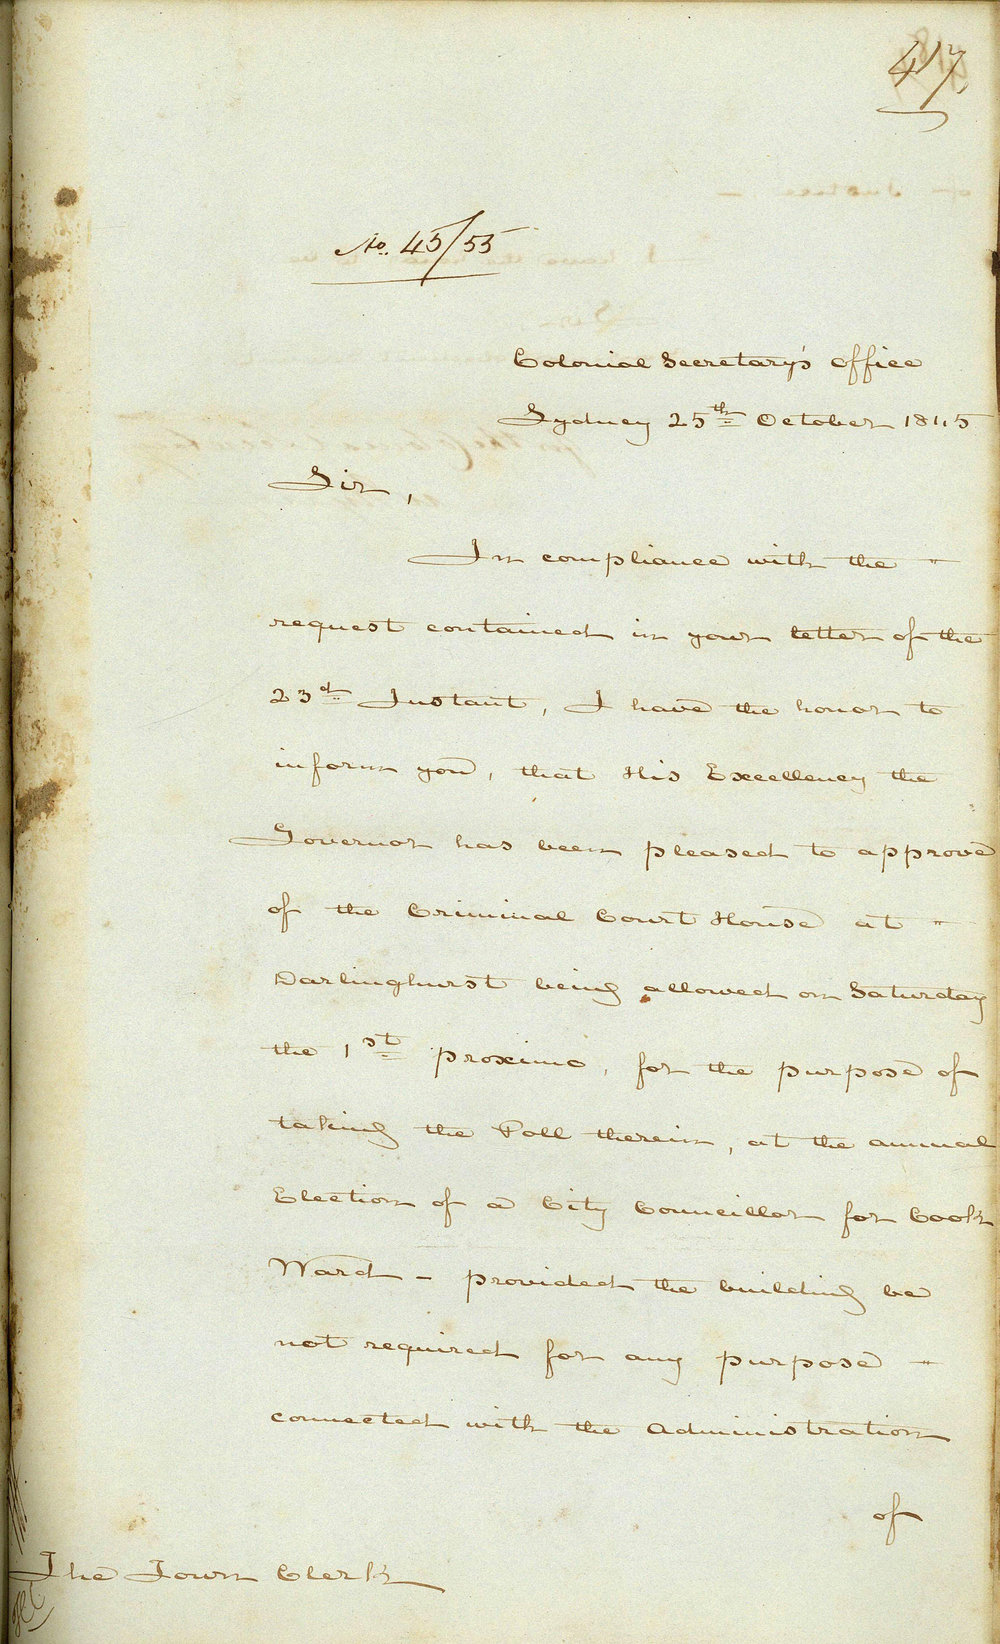 417.
No. 45/55
Colonial Secretary's Office
Sydney 25th October 1845
Sir,
In compliance with the "
request contained in your letter of the
23d Instant, I have the honor to
inform you, that His Excellency the
Governor has been pleased to approve
of the Criminal Court House at "
Darlinghurst being allowed on Saturday
the 1st proximo, for the purpose of
taking the Poll therein, at the annual
Election of a City Councillor for Cook
Ward - provided the building be
not required for any purpose "
connected with the Administration
of
The Town Clerk